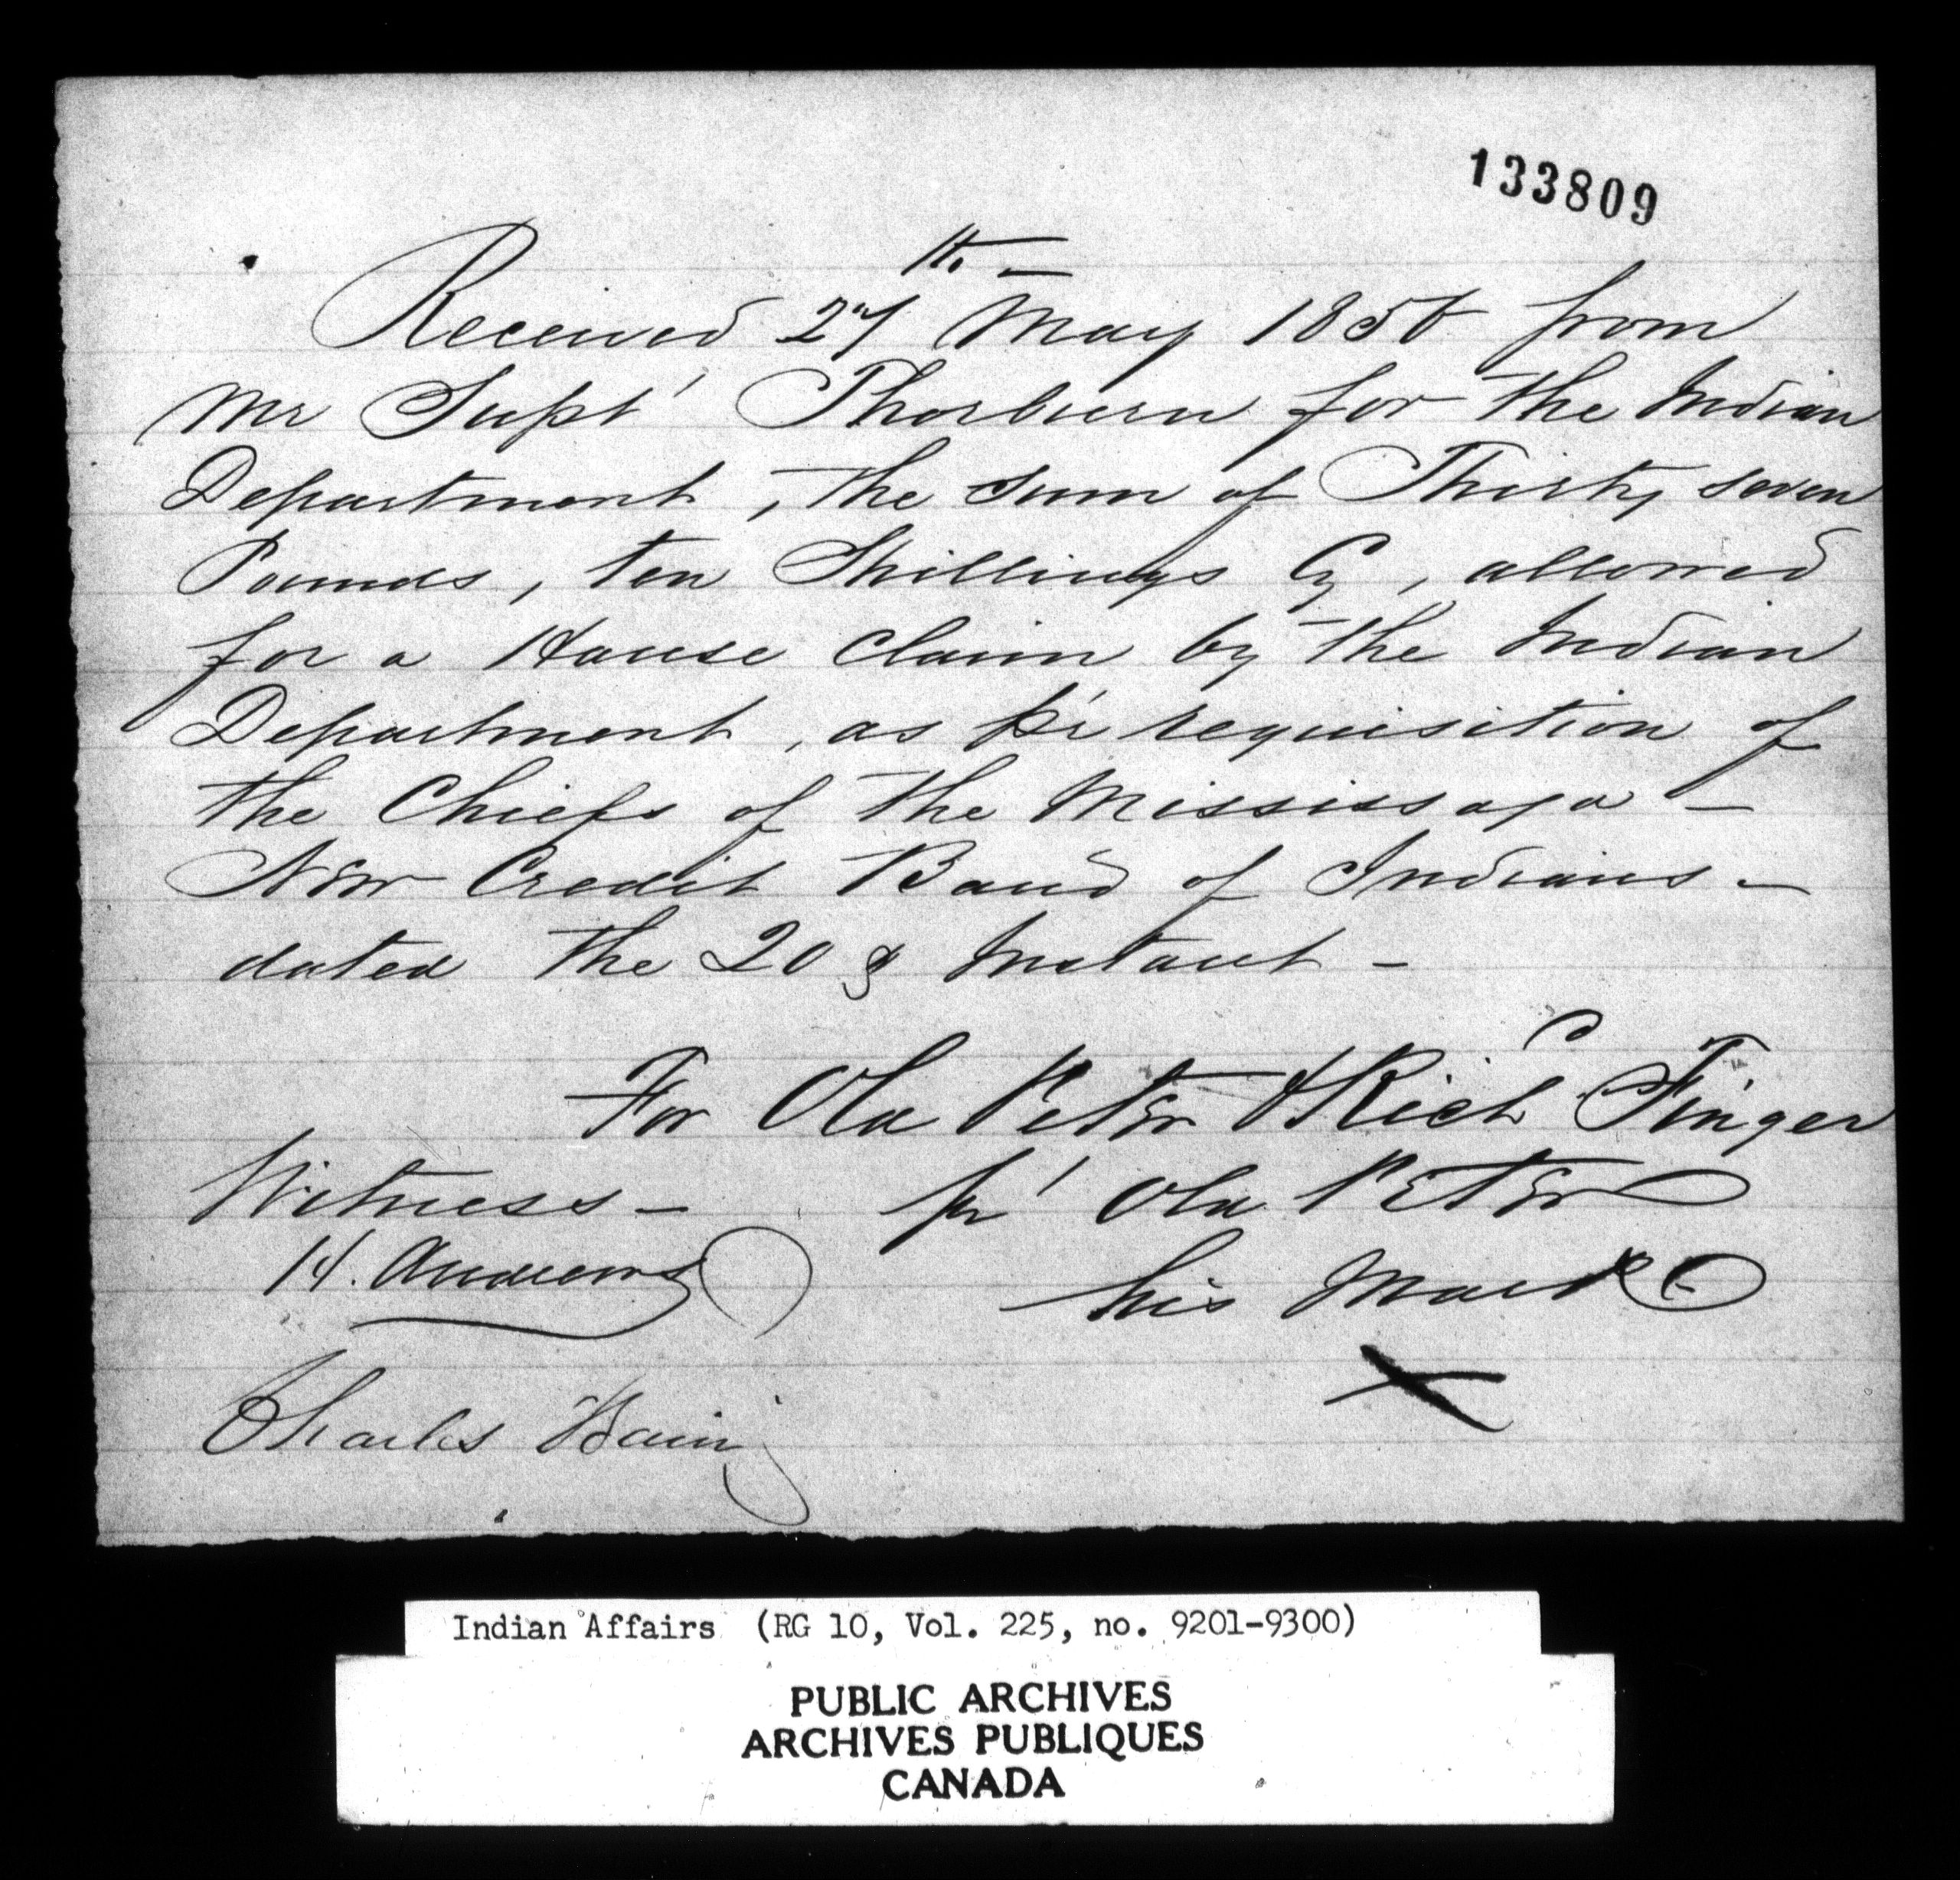 133809
Received 27th May 1856 from
Mr Supt Thorburn for the Indian
Department, the sum of Thirty seven
Pounds, ten Shillings Cy, allowed
for a House claim by the Indian
Department, as pr requisition of
the Chiefs of the Mississaga -
New Credit Band of Indians -
dated the 20 Instant -
For Old Peter & Rich Finger
Witness - pr Old Peter
H. Andrews his Mark
X
Charles Bain
Indian Affairs (RG 10, Vol. 225, no. 9201-9300)
PUBLIC ARCHIVES
ARCHIVES PUBLIQUES
CANADA